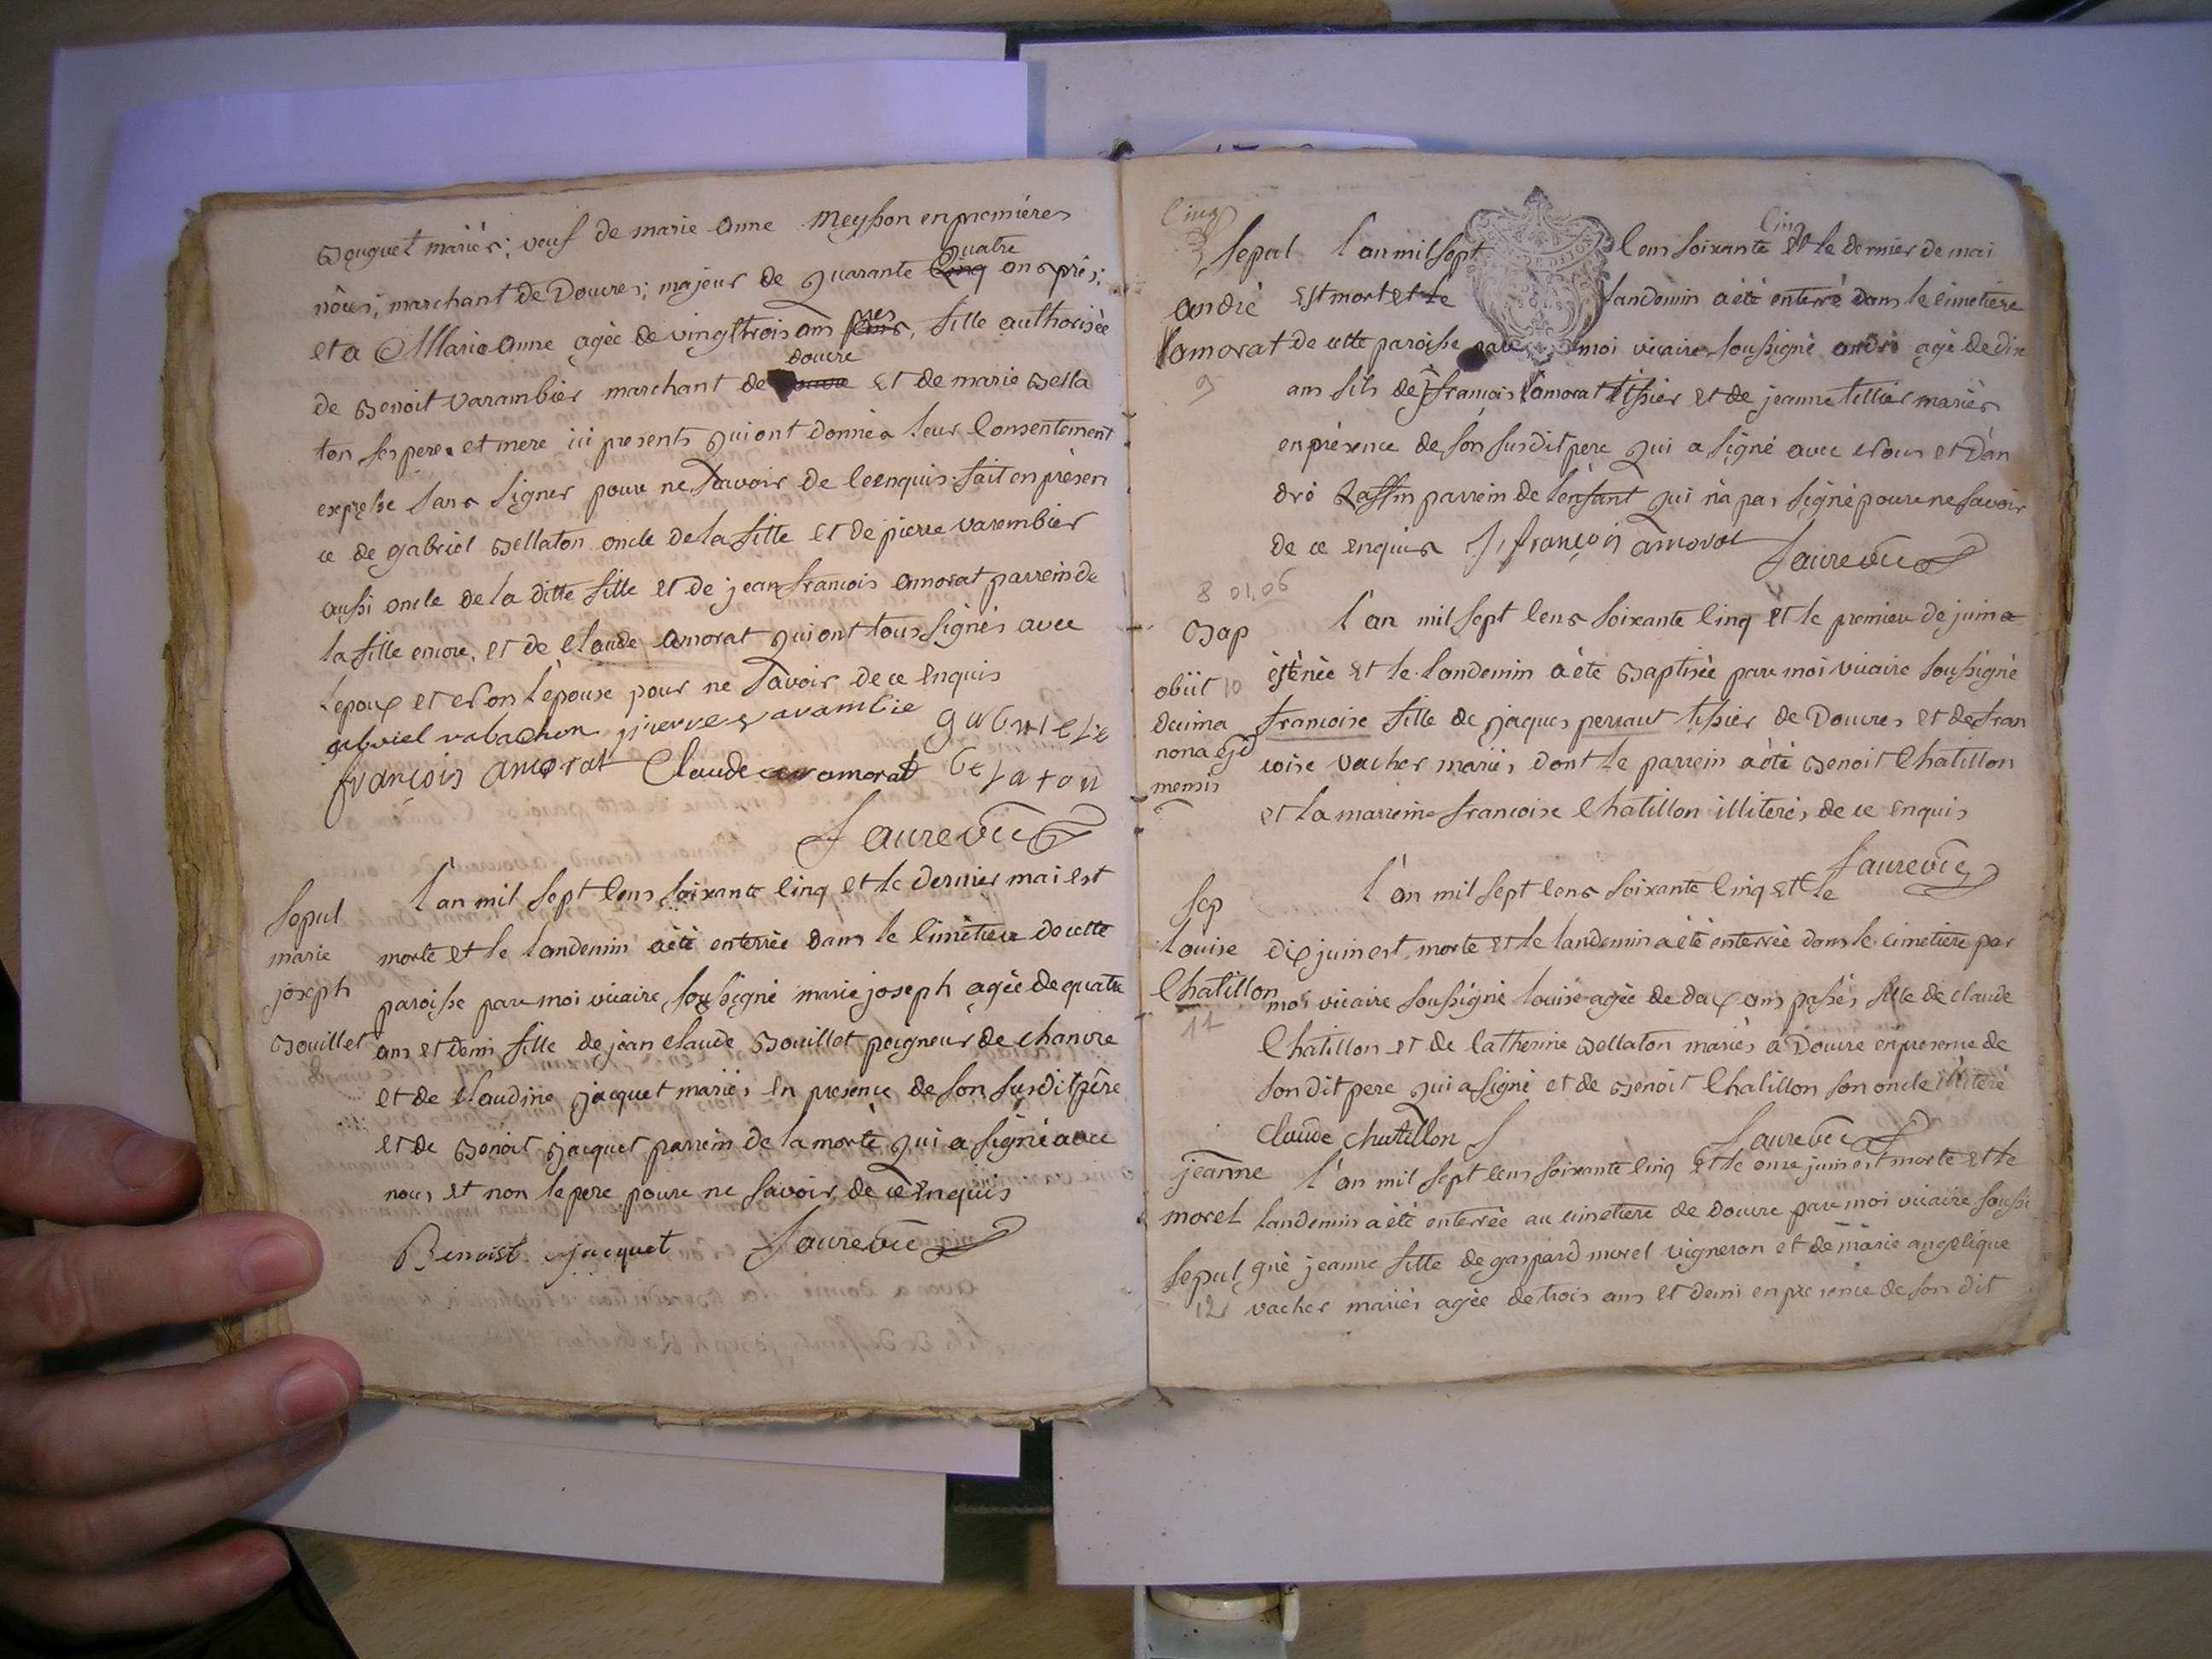 Bouquet mariés; veuf de marie Anne Meysson en premières
nôces; marchant de Douvres; majeur de quarante cinq quatre ans près;
et a Marie Anne agée de vingttrois ans près, fille authorisée
de Benoit Varambier marchant de douvre et de marie Bella
ton ses pere et mere ici presents qui ont donnés leur Consentement
expresse sans signer pour ne scavoir de ce enquis. fait en présen
ce de gabriel Bellaton oncle de la fille et de pierre varembier
aussi oncle de la ditte fille et de jean francois amorat parrein de
la fille encore, et de Claude amorat qui ont tous signés avec
l'epoux et non l'epouse pour ne sçavoir de ce enquis
gabriel rabachon pierre varambie gabriele
françois amorat Claude amorat belaton
faure vic
Sepul
marie
joseph
Bouillet
L'an mil sept Cens soixante Cinq et le dernier mai est
morte et le landemin a été enterrée dans le Cimetiere de cette
paroisse pare moi vicaire soussigné marie joseph agée de quatre
ans et demi fille de jean Claude Bouillet peigneur de chanvre
et de Claudine jacquet mariés en presence de son susdit père
et de Benoit jacquet parrein de la morte qui a signé avec
nous et non le pere poure ne savoir de ce enquis
Benoist jacquet faure vic
Cinq
Sepul
andré
amorat
9
L'an mil sept Cens soixante Cinq et le dernier de mai
est mort et le landemin a été enterré dans le cimetiere
de cette paroisse pare moi vicaire soussigné andré agé de dix
ans fils de j françois amorat tissier et de jeanne tellier mariés
en présence de son susdit pere qui a signé avec Nous et d'an
dré parrein de l'enfant qui n'a pas signé poure ne savoir
de ce enquis J, françois amorat faure vic
8 01.06
Bap
obiit 10
decima
nona ejd
mensis
L'an mil sept Cens soixante Cinq et le premier de juin a
été née et le landemin a été Baptisée pare moi vicaire soussigné
francoise fille de jaques perraut tissier de Douvres et de fran
coise vacher mariés dont le parrein a été Benoit Chatillon
et la marreine francoise Chatillon illiterés de ce enquis
faure vic
Sep
Louise
Chatillon
11
L'an mil sept Cens soixante Cinq et le
dix juin est morte et le landemin a été enterrée dans le cimetiere par
moi vicaire soussigné Louise agée de deux ans passés fille de Claude
Chatillon et de Catherine Bellaton mariés a Douvre en presence de
son dit pere qui a signé et de Benoit Chatillon son oncle illiteré
Claude chatillon faure vic
jeanne
morel
Sepul
12
L'an mil sept Cens soixante Cinq et le onze juin est morte et le
landemin a été enterrée au cimetiere de Douvre pare moi vicaire soussi
gné jeanne fille de gaspard morel vigneron et de marie angelique
vacher mariés agée de trois ans et demi en presence de son dit